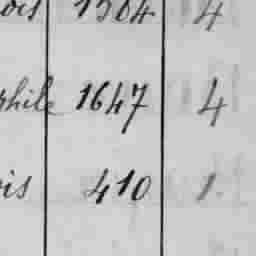 ois 1564 4
phile 1647 4
is 410 1